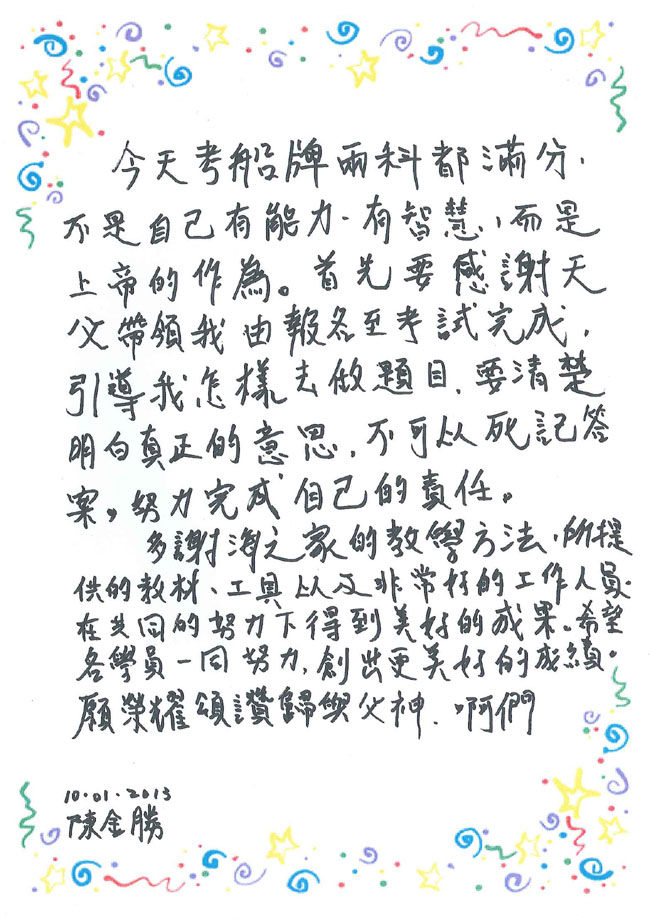 今天考船牌兩科都滿分，
不是自己有能力、有智慧，而是
上帝的作為。首先要感謝天
父帶領我由報名至考試完成，
引導我怎樣去做題目，要清楚
明白真正的意思，不可以死記答
案，努力完成自己的責任。
多謝海之家的教學方法，所提
供的教材、工具以及非常好的工作人員。
在共同的努力下得到美好的成果。希望
各學員一同努力，創出更美好的成績。
願榮耀頌讚歸與父神，啊們
10.01.2013
陳金勝